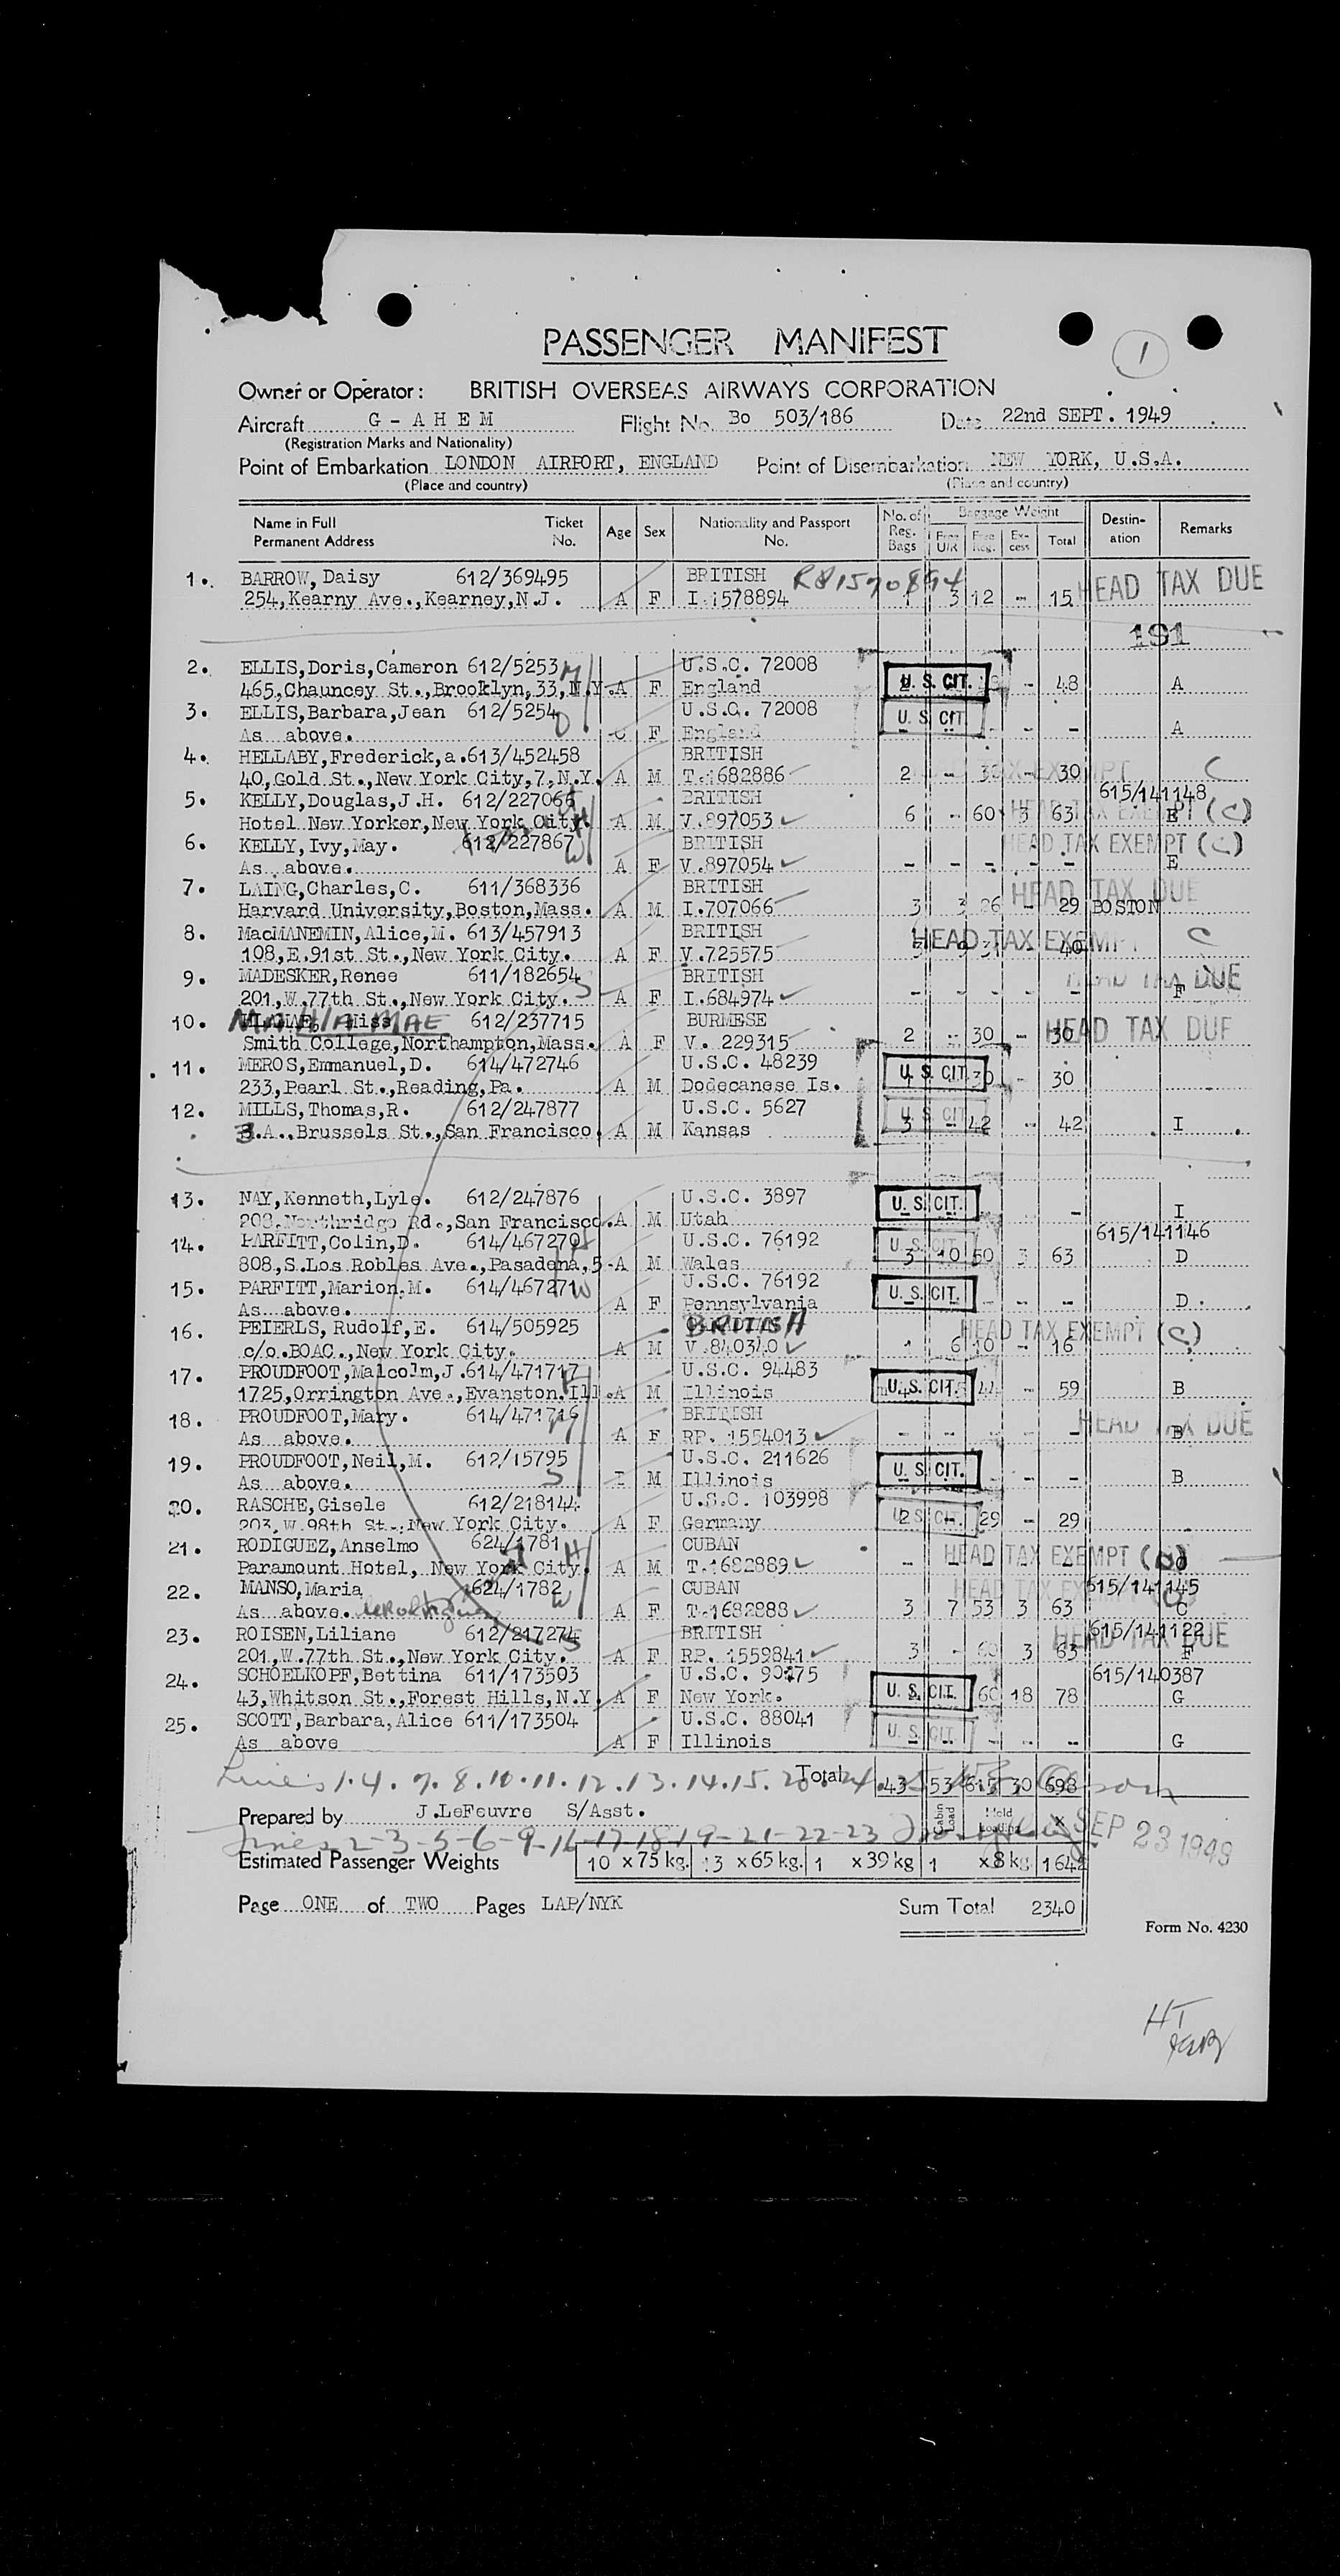 PASSENGER MANIFEST
1
Owner or Operator : BRITISH OVERSEAS AIRWAYS CORPORATION
Aircraft G - A H E M Flight No. Bo 503/186 Date 22nd SEPT. 1949
(Registration Marks and Nationality)
Point of Embarkation LONDON AIRPORT, ENGLAND Point of Disembarkation NEW YORK, U.S.A.
(Place and country) (Place and country)
Name in Full Permanent Address Ticket No. Age Sex Nationality and Passport No. No. of Reg. Bags Baggage Weight Free U/R Free Reg. Ex-cess Total Destin-ation Remarks
1. BARROW, Daisy 612/369495 BRITISH HEAD TAX DUE
254,Kearny Ave.,Kearney,N.J. A F I.1578894 1 3 12 - 15
191
2. ELLIS,Doris,Cameron 612/5253 U.S.C. 72008
465,Chauncey St.,Brooklyn,33,N.Y. A F England U. S. CIT. - 48 A
3. ELLIS,Barbara,Jean 612/5254 U.S.C. 72008 U. S. CIT.
As above. C F England - - - - - A
4. HELLABY,Frederick,a.613/452458 BRITISH
40,Gold St.,New York City,7,N.Y. A M T.1682886 2 - 30 - 30 HEAD TAX EXEMPT C
5. KELLY,Douglas,J.H. 612/227066 BRITISH 615/141148
Hotel New Yorker,New York City. A M V.897053 6 - 60 3 63 E HEAD TAX EXEMPT (C)
6. KELLY,Ivy,May. 612/227867 BRITISH HEAD TAX EXEMPT (C)
As above. A F V.897054 - - - - - E
7. LAING,Charles,C. 611/368336 BRITISH HEAD TAX DUE
Harvard University,Boston,Mass. A M I.707066 3 3 26 - 29 BOSTON
8. MacMANEMIN,Alice,M. 613/457913 BRITISH HEAD TAX EXEMPT C
108,E.91st St.,New York City. A F V.725575 9 31 40
9. MADESKER,Renee 611/182654 BRITISH HEAD TAX DUE
201,W.77th St.,New York City. S A F I.684974 - - - - - F
10. MAE Miss 612/237715 BURMESE HEAD TAX DUE
Smith College,Northampton,Mass. A F V. 229315 2 - 30 - 30
11. MEROS,Emmanuel,D. 614/472746 U.S.C. 48239 U. S. CIT.
233,Pearl St.,Reading,Pa. A M Dodecanese Is. 30 - 30
12. MILLS,Thomas,R. 612/247877 U.S.C. 5627 U. S. CIT.
.A.,Brussels St.,San Francisco. A M Kansas 3 - 42 - 42 I
13. NAY,Kenneth,Lyle. 612/247876 U.S.C. 3897 U. S. CIT.
208,Northridge Rd.,San Francisco. A M Utah - I
14. PARFITT,Colin,D. 614/467270 U.S.C. 76192 U. S. CIT. 615/141146
808,S.Los Robles Ave.,Pasadena,5 - A M Wales 3 10 50 3 63 D
15. PARFITT,Marion,M. 614/467271 W U.S.C. 76192 U. S. CIT.
As above. A F Pennsylvania - - - D
16. PEIERLS, Rudolf,E. 614/505925 BRITISH HEAD TAX EXEMPT (C)
c/o.BOAC.,New York City. A M V.840340 1 6 10 - 16
17. PROUDFOOT,Malcolm,J.614/471717 U.S.C. 94483 U. S. CIT.
1725,Orrington Ave.,Evanston.Ill. A M Illinois 44 - 59 B
18. PROUDFOOT,Mary. 614/471716 BRITISH HEAD TAX DUE
As above. A F RP. 1554013 - - - - - B
19. PROUDFOOT,Neil,M. 612/15795 U.S.C. 211626 U. S. CIT.
As above. S I M Illinois - - - B
20. RASCHE,Gisele 612/218144 U.S.C. 103998 U. S. CIT.
203,W.98th St.,New York City. A F Germany 2 - 29 - 29
21. RODIGUEZ,Anselmo 624/1781 H CUBAN HEAD TAX EXEMPT
Paramount Hotel, New York City. A M T.1682889 - - - - -
22. MANSO,Maria 624/1782 W CUBAN HEAD TAX EXEMPT 615/141145
As above. A F T.1682888 3 7 53 3 63 C
23. ROISEN,Liliane 612/217274 S BRITISH 615/141122 HEAD TAX DUE
201,W.77th St.,New York City. A F RP. 1559841 3 - 60 3 63 F
24. SCHOELKOPF,Bettina 611/173503 U.S.C. 90475 615/140387
43,Whitson St.,Forest Hills,N.Y. A F New York. U. S. CIT. 60 18 78 G
25. SCOTT,Barbara,Alice 611/173504 U.S.C. 88041 U. S. CIT.
As above A F Illinois - - - G
Lines 1.4.7.8.10.11.12.13.14.15.20.24. Total 43 53 615 30 698
Prepared by J.LeFeuvre S/Asst. Cabin Load Hold Loading X SEP 23 1949
Lines 2-3-5-6-9-16-17-18-19-21-22-23
Estimated Passenger Weights 10 x 75 kg. 13 x 65 kg. 1 x 39 kg 1 x 8 kg 1642
Page ONE of TWO Pages LAP/NYK Sum Total 2340
Form No. 4230
HT